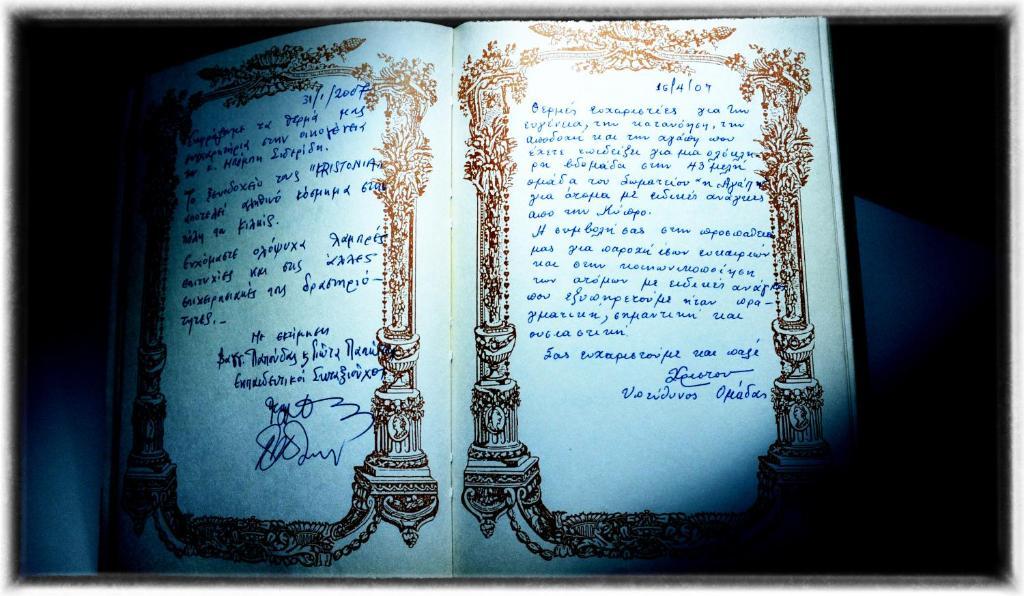 31/1/2007
τα θερμά μας
συγχαρητήρια στην οικογένεια
του κ. Σιδερίδη.
Το ξενοδοχείο τους "KRISTONIA"
αποτελεί αληθινό κόσμημα στην
πόλη του Κιλκίς.
Ευχόμαστε ολόψυχα λαμπρές
επιτυχίες και στις άλλες
επιχειρηματικές της δραστηριό-
τητες._
Με εκτίμηση
Βαγγ. Παπούδας & Γιώτα
Εκπαιδευτικοί Συνταξιούχοι
16/4/07
Θερμές ευχαριστίες για την
ευγένεια, την κατανόηση, την
αποδοχή και την αγάπη που
έχετε επιδείξει για μια ολόκλη-
ρη βδομάδα στην 43 μελή
ομάδα του Σωματείου "η Αγάπη"
για άτομα με ειδικές ανάγκες
από την Κύπρο.
Η συμβολή σας στην προσπάθεια
μας για παροχή ίσων ευκαιριών
και στην κοινωνικοποίηση
των ατόμων με ειδικές ανάγκες
που εξυπηρετούμε ήταν πρα-
γματική, σημαντική και
ουσιαστική.
Σας ευχαριστούμε και πάλι
Χρίστου
Υπεύθυνος Ομάδας